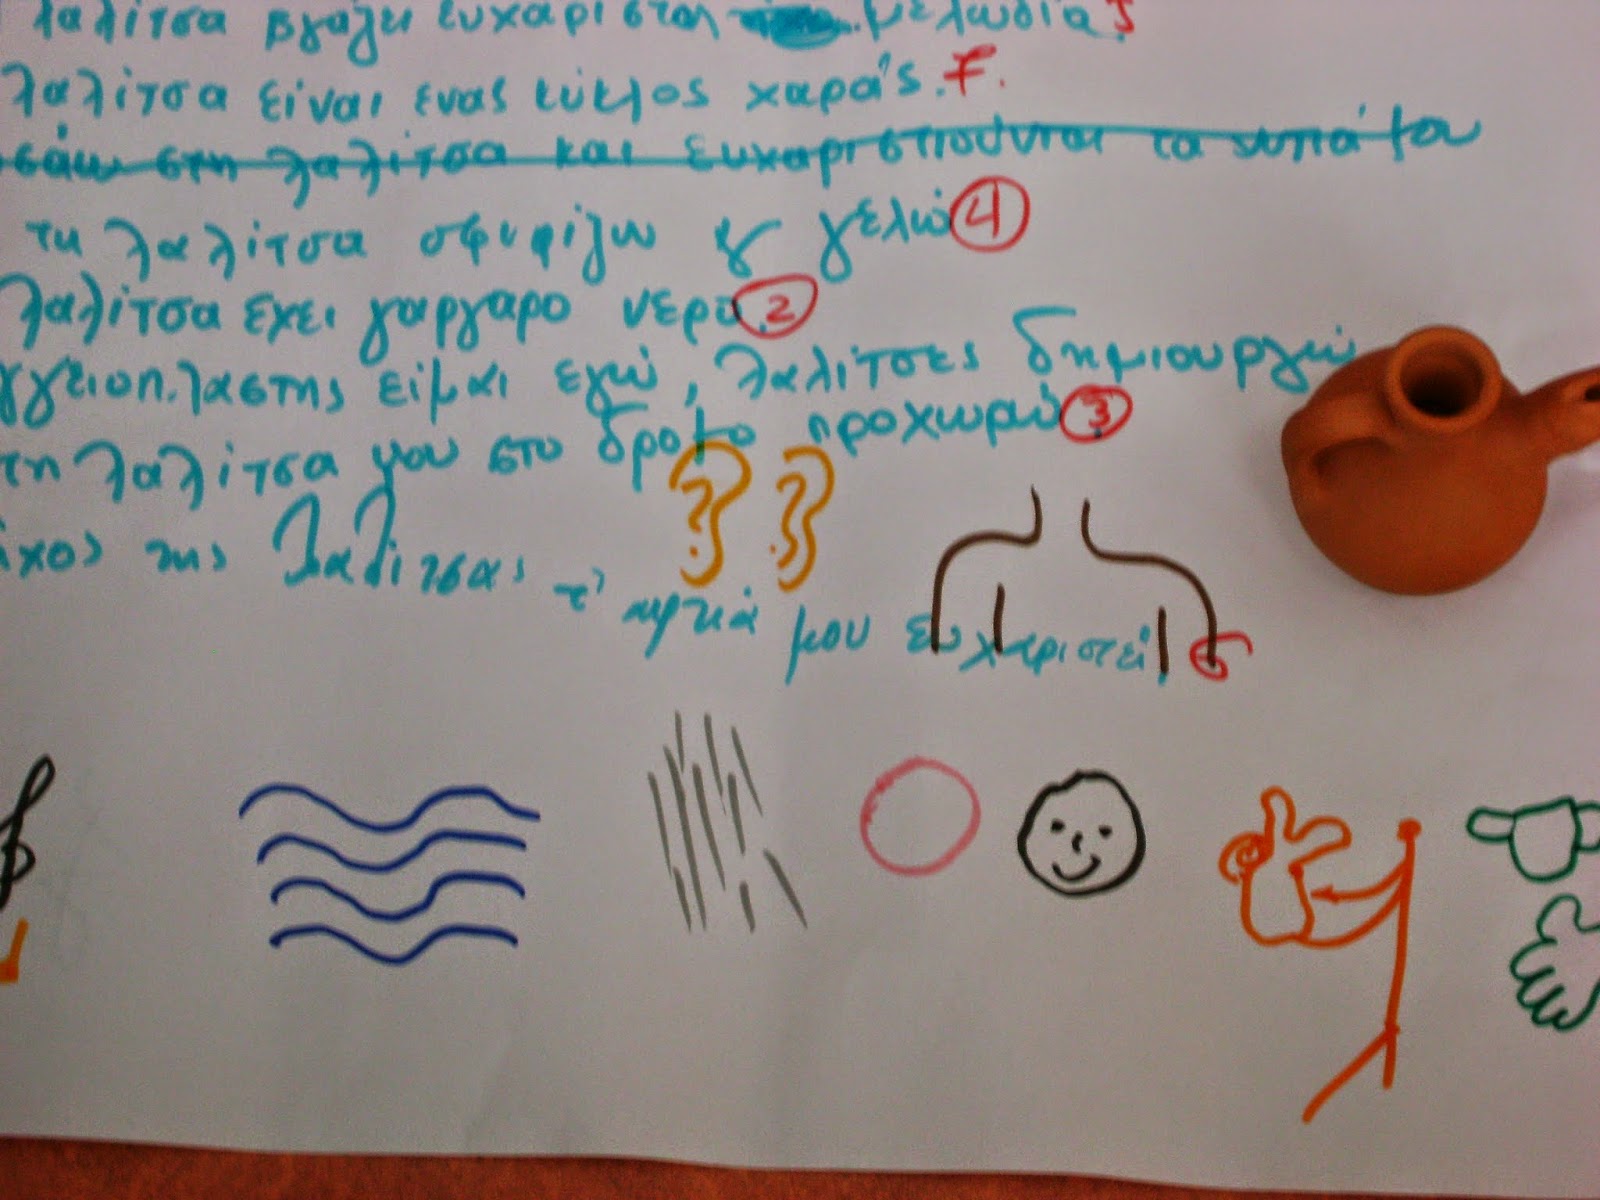 λαλίτσα βγάζει ευχάριστη μελωδία 5
λαλίτσα είναι ένας κύκλος χαράς. F.
στη λαλίτσα και ευχαριστιούνται τα
τη λαλίτσα σφυρίζω & γελώ 4
λαλίτσα έχει γάργαρο νερό. 2
γγειοπλάστης είμαι εγώ, λαλίτσες δημιουργώ
τη λαλίτσα μου στο δρόμο προχωρώ 3
ήχος της λαλίτσας τ' αυτιά μου ευχαριστεί, 6